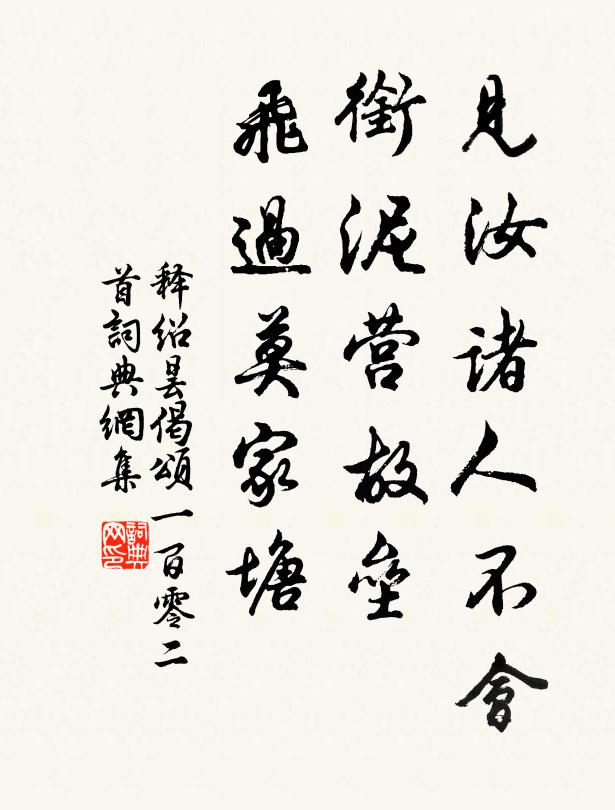 見汝諸人不會
銜泥营故壘
飛過莫家塘
释绍昙偈頌一百零二
首詞典網集
詞典
网印